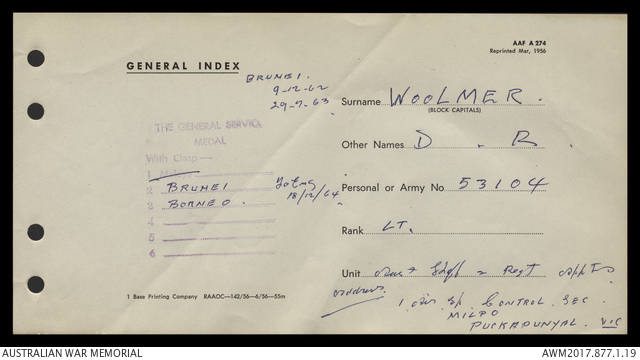 AAF A 274
Reprinted Mar, 1956
GENERAL INDEX
BRUNEI.
9-12-62
29-7-63
Surname WOOLMER.
(BLOCK CAPITALS)
THE GENERAL SERVICE
MEDAL
With Clasp—
Other Names D. R
1
2 BRUNEI
3 BORNEO.
4
5
6
18/12/64
Personal or Army No 53104
Rank LT.
Unit Regt
address
1 CONTROL SEC.
MILPO
PUCKAPUNYAL. VIC
1 Base Printing Company RAAOC—142/56—6/56—55m
AUSTRALIAN WAR MEMORIAL
AWM2017.877.1.19